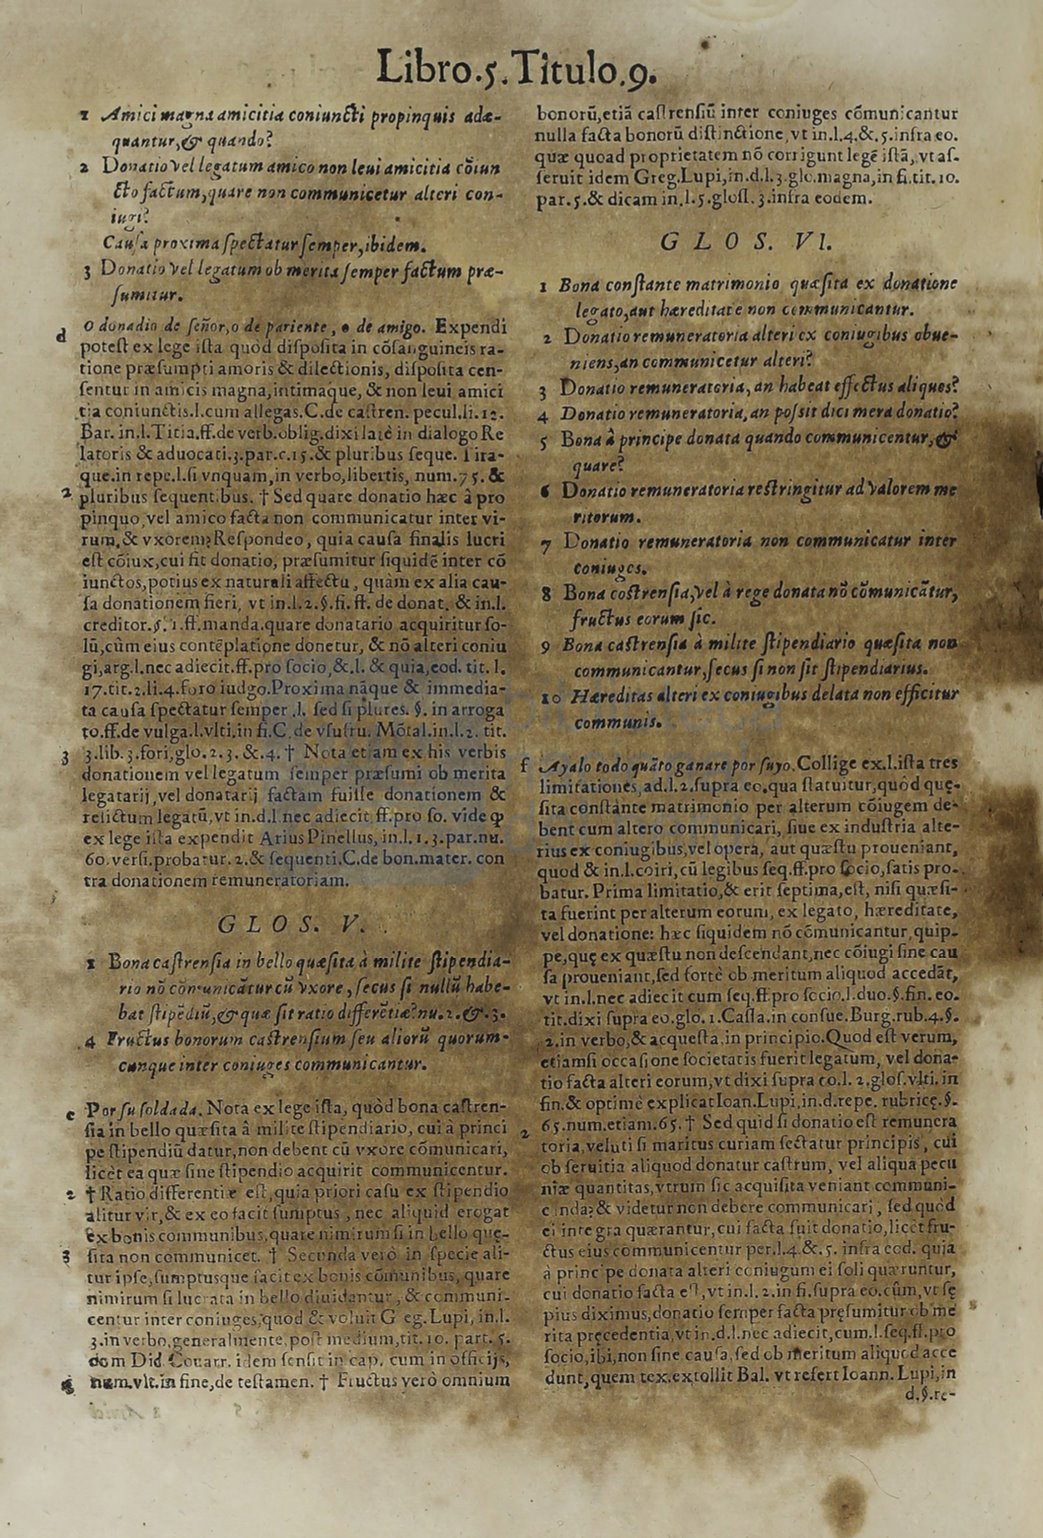 Libro.5.Titulo.9.
1 Amici magna amicitia coniuncti propinquis adæ-
quantur,& quando?
2 Donatio vel legatum amico non leui amicitia cõiun
cto factum,quare non communicetur alteri con-
iugi?
Causa proxima spectatur semper,ibidem.
3 Donatio vel legatum ob merita semper factum præ-
sumitur.
d O donadio de señor,o de pariente, o de amigo. Expendi
potest ex lege ista quòd disposita in cõsanguineis ra-
tione præsumpti amoris & dilectionis, disposita cen-
sentur in amicis magna,intimaque, & non leui amici
tia coniunctis.l.cum allegas.C.de castren. pecul.li.12.
Bar. in.l.Titia.ff.de verb.oblig.dixi latè in dialogo Re
latoris & aduocati.3.par.c.15.& pluribus seque. Tira-
que.in repe.l.si vnquam,in verbo,libertis, num.75. &
2 pluribus sequentibus. † Sed quare donatio hæc à pro
pinquo,vel amico facta non communicatur inter vi-
rum,& vxorem?Respondeo, quia causa finalis lucri
est cõiux,cui fit donatio, præsumitur siquidẽ inter cõ
iunctos,potius ex naturali affectu, quàm ex alia cau-
sa donationem fieri, vt in.l.2.§.fi. ff. de donat. & in.l.
creditor.§.1.ff.manda.quare donatario acquiritur so-
lũ,cùm eius contẽplatione donetur, & nõ alteri coniu
gi,arg.l.nec adiecit.ff.pro socio,&.l. & quia,eod. tit. l.
17.tit.2.li.4.foro iudgo.Proxima nãque & immedia-
ta causa spectatur semper .l. sed si plures. §. in arroga
to.ff.de vulga.l.vlti.in fi.C.de vsufru. Mõtal.in.l.2. tit.
3 3.lib.3.fori,glo.2.3.&.4.† Nota etiam ex his verbis
donationem vel legatum semper præsumi ob merita
legatarij,vel donatarij factam fuisse donationem &
relictum legatũ,vt in.d.l nec adiecit.ff.pro so. vide ꝙ
ex lege ista expendit Arius Pinellus, in.l.1.3.par.nu.
60.versi.probatur.2.& sequenti.C.de bon.mater. con
tra donationem remuneratoriam.
GLOS. V.
1 Bona castrensia in bello quæsita à milite stipendia-
rio nõ cõmunicãtur cũ vxore, secus si nullũ habe-
bat stipẽdiũ,& quæ sit ratio differẽtiæ?nu.2.&.3.
4 Fructus bonorum castrensium seu aliorũ quorum-
cunque inter coniuges communicantur.
e Por su soldada. Nota ex lege ista, quòd bona castren-
sia in bello quæsita à milite stipendiario, cui à princi
pe stipendiũ datur,non debent cũ vxore cõmunicari,
licèt ea quæ sine stipendio acquirit communicentur.
2 † Ratio differentiæ est,quia priori casu ex stipendio
alitur vir,& ex eo facit sumptus, nec aliquid erogat
ex bonis communibus,quare nimirum si in bello quę-
3 sita non communicet. † Secunda verò in specie ali-
tur ipse,sumptusque facit ex bonis cõmunibus, quare
nimirum si lucrata in bello diuidantur, & communi-
centur inter coniuges,quod & voluit Greg.Lupi, in.l.
3.in verbo,generalmente,post medium,tit.10. part. 5.
dom Did. Couarr. idem sensit in cap. cum in officijs,
4 num.vlt.in fine,de testamen. † Fructus verò omnium
bonorũ,etiã castrensiũ inter coniuges cõmunicantur
nulla facta bonorũ distinctione,vt in.l.4.&.5.infra eo.
quæ quoad proprietatem nõ corrigunt legẽ istã,vt as-
seruit idem Greg.Lupi,in.d.l.3.glo.magna,in fi.tit.10.
par.5.& dicam in.l.5.glos.3.infra eodem.
GLOS. VI.
1 Bona constante matrimonio quæsita ex donatione
legato,aut hæreditate non communicantur.
2 Donatio remuneratoria alteri ex coniugibus obue-
niens,an communicetur alteri?
3 Donatio remuneratoria, an habeat effectus aliquos?
4 Donatio remuneratoria,an possit dici mera donatio?
5 Bona à principe donata quando communicentur,&
quare?
6 Donatio remuneratoria restringitur ad valorem me
ritorum.
7 Donatio remuneratoria non communicatur inter
coniuges.
8 Bona costrensia,vel à rege donata nõ cõmunicãtur,
fructus eorum sic.
9 Bona castrensia à milite stipendiario quæsita non
communicantur,secus si non sit stipendiarius.
10 Hæreditas alteri ex coniugibus delata non efficitur
communis.
f Ayalo todo quãto ganare por suyo.Collige ex.l.ista tres
limitationes,ad.l.2.supra eo.qua statuitur,quòd quę-
sita constante matrimonio per alterum cõiugem de-
bent cum altero communicari, siue ex industria alte-
rius ex coniugibus,vel opera, aut quæstu proueniant,
quod & in.l.coiri,cũ legibus seq.ff.pro socio,satis pro-
batur. Prima limitatio,& erit septima,est, nisi quæsi-
ta fuerint per alterum eorum, ex legato, hæreditate,
vel donatione: hæc siquidem nõ cõmunicantur,quip-
pe,quę ex quæstu non descendant,nec cõiugi sine cau
sa proueniant,sed fortè ob meritum aliquod accedãt,
vt in.l.nec adiecit cum seq.ff.pro socio.l.duo.§.fin. eo.
tit.dixi supra eo.glo. 1.Cassa.in consue.Burg.rub.4.§.
2.in verbo,& acquesta,in principio.Quod est verum,
etiamsi occasione societatis fuerit legatum, vel dona-
tio facta alteri eorum,vt dixi supra eo.l. 2.glos.vlti. in
fin.& optimè explicat Ioan.Lupi,in.d.repe. rubricę.§.
2 65.num.etiam.65.† Sed quid si donatio est remunera
toria,veluti si maritus curiam sectatur principis, cui
ob seruitia aliquod donatur castrum, vel aliqua pecu
niæ quantitas,vtrum sic acquisita veniant communi-
canda?& videtur non debere communicari, sed quòd
ei integra quærantur,cui facta fuit donatio,licèt fru-
ctus eius communicentur per.l.4.&.5. infra eod. quia
à principe donata alteri coniugum ei soli quæruntur,
cui donatio facta est,vt in.l.2.in fi.supra eo.cùm,vt sę
pius diximus,donatio semper facta pręsumitur ob me
rita pręcedentia,vt in.d.l.nec adiecit,cum.l.seq.ff.pro
socio,ibi,non sine causa,sed ob meritum aliquod acce
dunt,quem tex.extollit Bal. vt refert Ioann. Lupi,in
d.§.re-